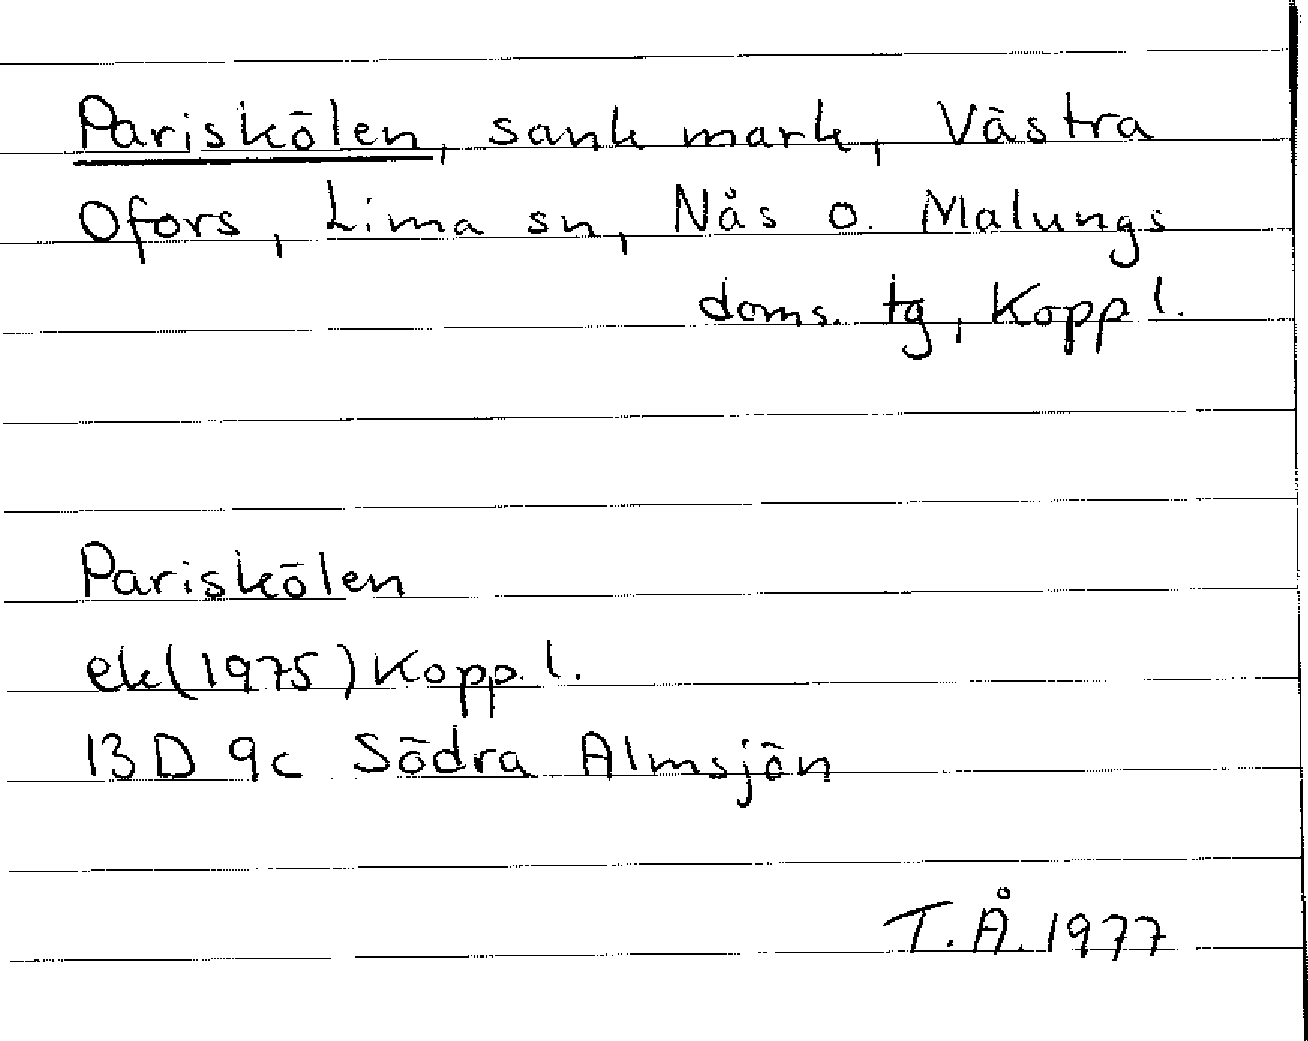 Pariskölen, sank mark, Västra
Ofors, Lima sn, Nås o. Malungs
doms. tg, Kopp l.
Pariskölen
ek(1975) Kopp. l.
13 D 9c Södra Almsjön
T.Å. 1977